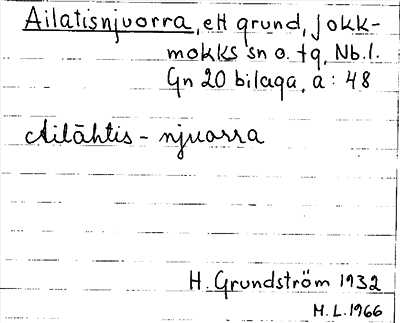 Ailatisnjuorra, ett grund, Jokk-
mokks sn o. tg, Nb.l.
Gn 20 bilaga, a: 48
Ailāhtis - njuorra
H. Grundström 1932
M.L.1966